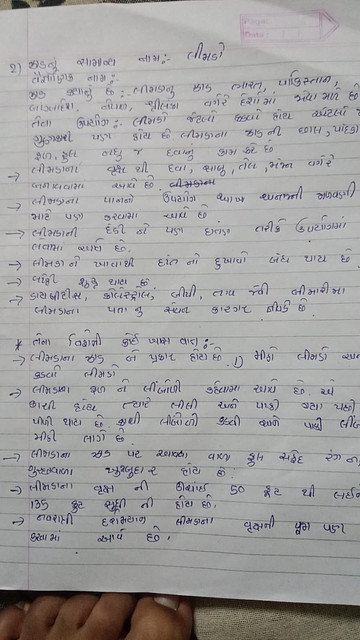 Page:
Date:
૨) ઝાડનું સામાન્ય નામ:- લીમડો
વૈજ્ઞાનિક નામ:-
ઝાડ ક્યાનું છે:- લીમડાનુ ઝાડ ભારત, પાકિસ્તાન,
બાંગ્લાદેશ, નેપાળ, શ્રીલંકા વગેરે દેશોમાં જોવા મળે છે.
તેના ઉપયોગ:- લીમડો જેટલો કડવો હોય એટલો જ
ગુણકારી પણ હોય છે લીમડાના ઝાડ ની છાલ, પાંદડા
ફળ, ફુલ બધુ જ દવાનું કામ કરે છે
→ લીમડાના વૃક્ષ થી દવા, સાબુ, તેલ, મંજન વગેરે
બનાવવામાં આવે છે.
→ લીમડાના પાનનો ઉપયોગ અનાજની જાળવણી
માટે પણ કરવામાં આવે છે
→ લીમડાની દંડી નો પણ દાતણ તરીકે ઉપયોગમાં
લેવામાં આવે છે.
→ લીમડાને ખાવાથી દાંત નો દુખાવો બંધ થાય છે
→ લોહી શુદ્ધ થાય છે
→ ડાયાબીટીસ, કોલેસ્ટ્રોલ, બીપી, તાવ જેવી બીમારીમાં
લીમડાના પતા નુ સેવન કારગર નીવડે છે
* તેના વિશેની કોઈ ખાસ વાત:-
→ લીમડાના ઝાડ બે પ્રકાર હોય છે. 1) મીઠો લીમડો અને
કડવો લીમડો
→ લીમડાના ફળ ને લીંબોળી કહેવામાં આવે છે. એ
કાચી હોય ત્યારે લીલી અને પાકી ગયા પછી
પીળી થાય છે. કાચી લીંબોળી કડવી અને પાકી લીંબોળી
મીઠી લાગે છે.
→ લીમડાના ઝાડ પર આવવા વાળા ફુલ સફેદ રંગ ના
ખુશબુદાર હોય છે
→ લીમડાના વૃક્ષ ની ઊંચાઈ 50 ફુટ થી લઈને
135 ફુટ સુધી ની હોય છે.
→ નવરાત્રી દરમિયાન લીમડાના વૃક્ષની પૂજા પણ
કરવામાં આવે છે.